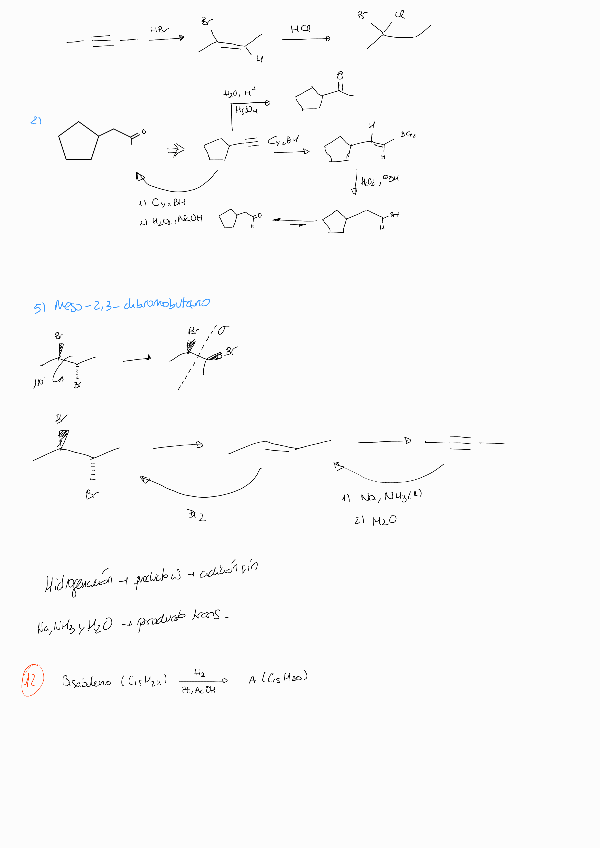 HBr
Br
H
HCl
Br Cl
2)
O
H2O, H+
H2SO4
O
Cy2BH
H
BCy2
H
H2O2, OH
1) Cy2BH
2) H2O2, AcOH
O
H
OH
H
5) Meso-2,3-dibromobutano
Br
Br
Br
σ
Br
Br
Br
Br2
1) Na, NH3(l)
2) H2O
Hidrogenación → producto cis → adición sin
Na, NH3 y H2O → producto trans.
12
Bisaboleno (C15H24) H2 Pt, AcOH A (C15H30)